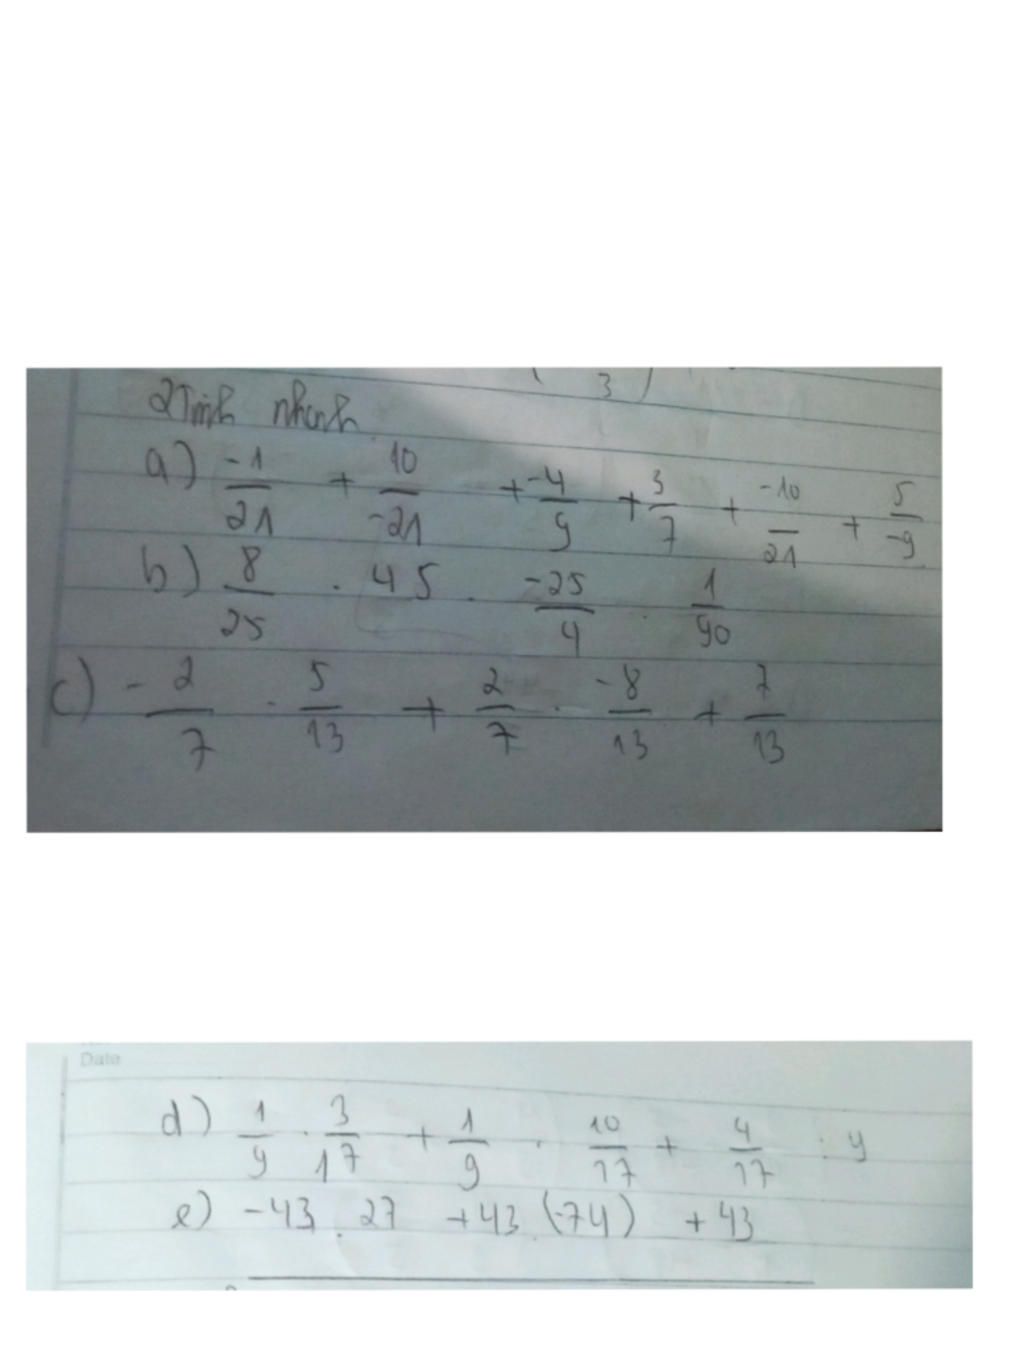 3 )
2 Tính nhanh
a) -1/21 + 10/-21 + -4/9 + 3/7 + -10/21 + 5/-9
b) 8/25 . 45 . -25/4 . 1/90
c) - 2/7 . 5/13 + 2/7 . -8/13 + 7/13
Date
d) 1/9 . 3/17 + 1/9 . 10/17 + 4/17 : 9
e) -43 . 27 + 43 . (-74) + 43